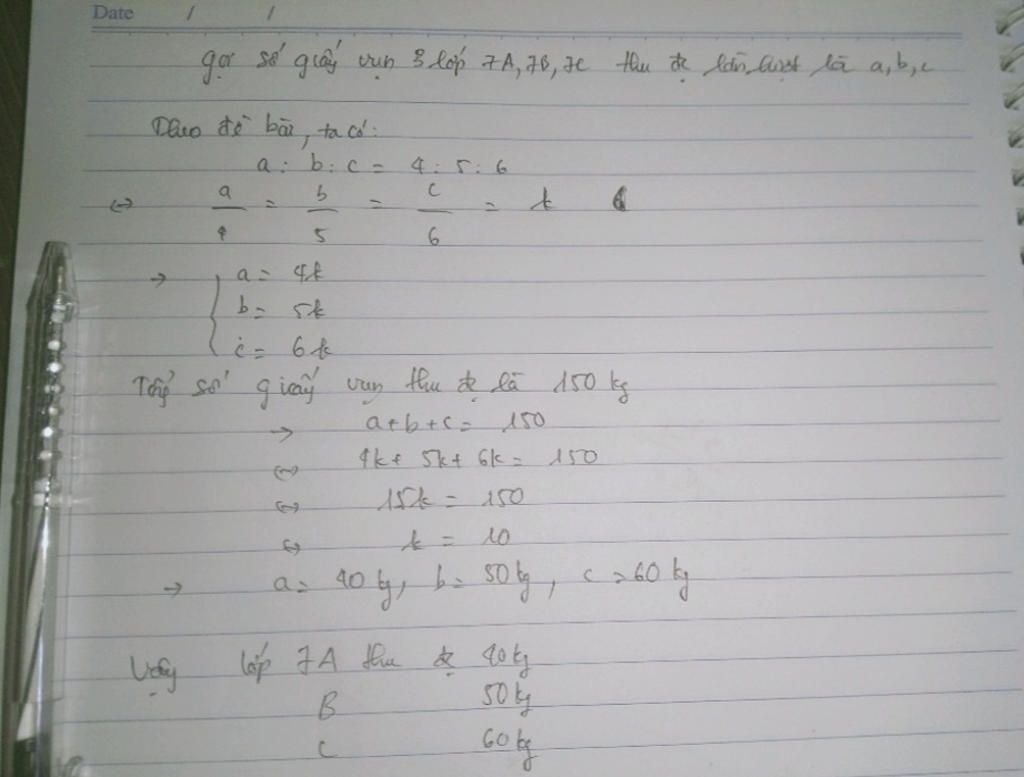 Date / /
gọi số giấy vụn 3 lớp 7A, 7B, 7C thu đc lần lượt là a, b, c
Theo đề bài, ta có:
a : b : c = 4 : 5 : 6
<-> a/4 = b/5 = c/6 = k
-> { a = 4k
b = 5k
c = 6k
Tổng số giấy vụn thu đc là 150 kg
-> a+b+c = 150
<-> 4k + 5k + 6k = 150
<-> 15k = 150
<-> k = 10
-> a = 40 kg, b = 50 kg, c = 60 kg
Vậy lớp 7A thu đc 40kg
B 50kg
C 60kg